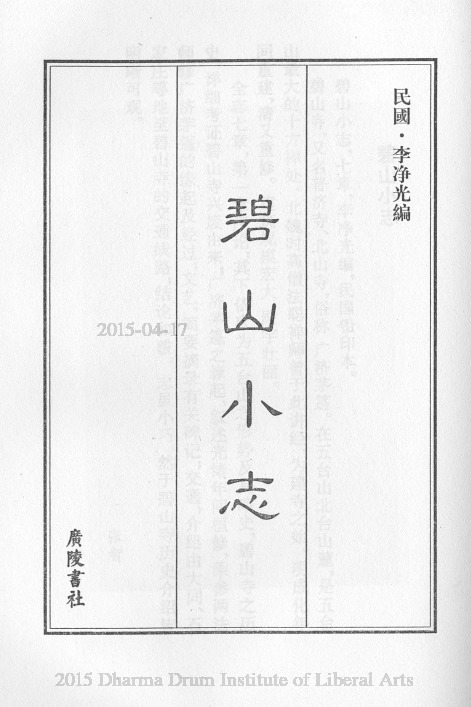 民國·李净光編
碧山小志
廣陵書社
2015-04-17
2015 Dharma Drum Institute of Liberal Arts